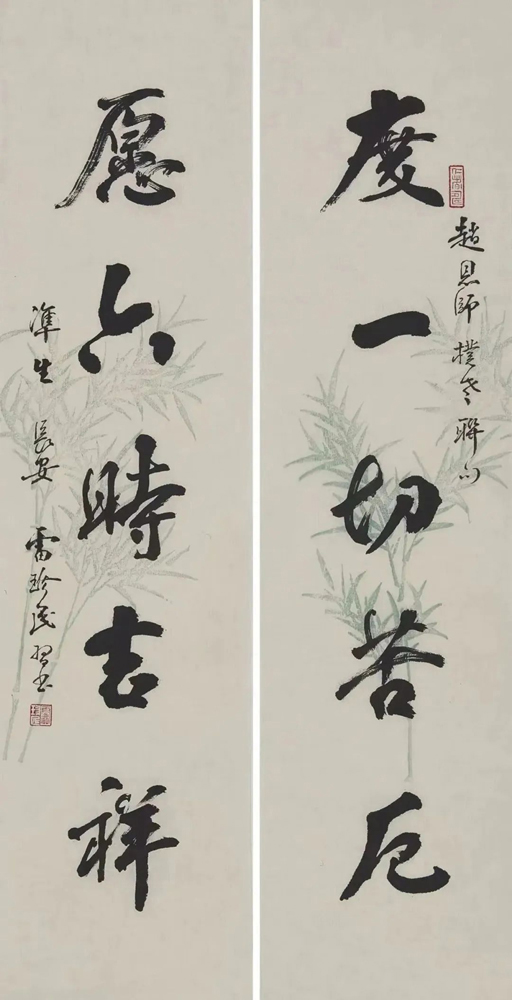 度一切苦厄
趙恩師樸老聯句
愿六時吉祥
準生長安雷珍民習書